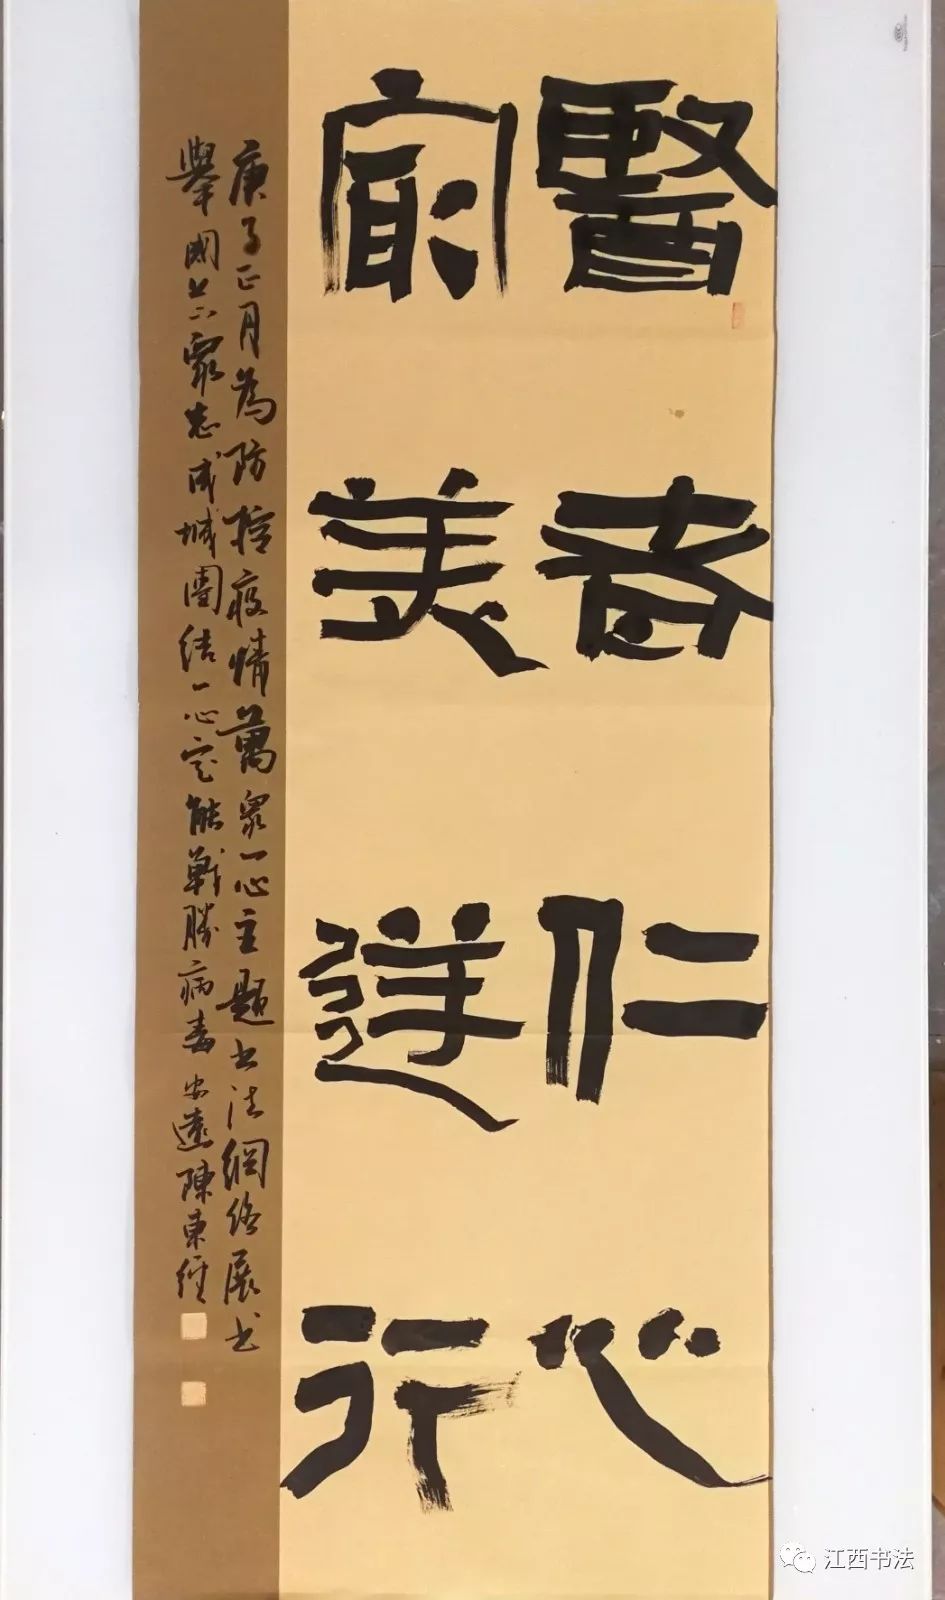 醫者仁心
寂美逆行
庚子正月為防控疫情萬眾一心主題書法網絡展書
舉國上下眾志成城團結一心定能戰勝病毒 安遠陳東經
江西书法